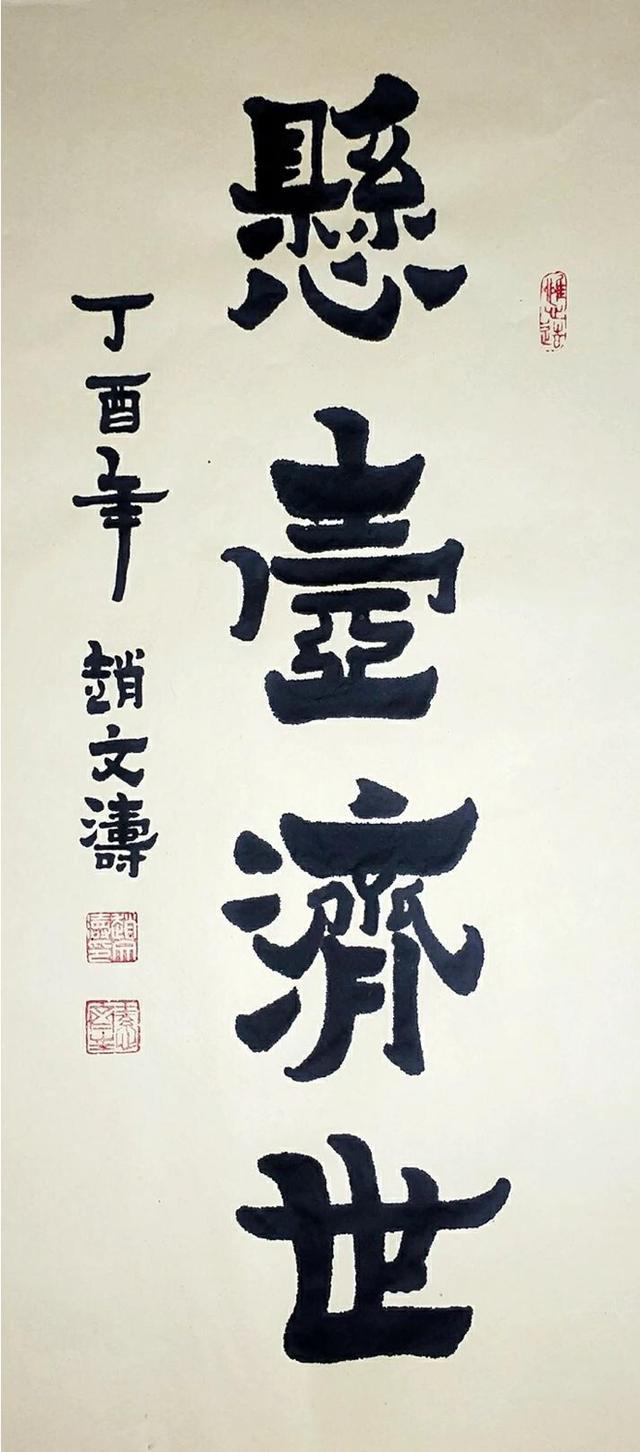 懸壺濟世
丁酉年 趙文濤